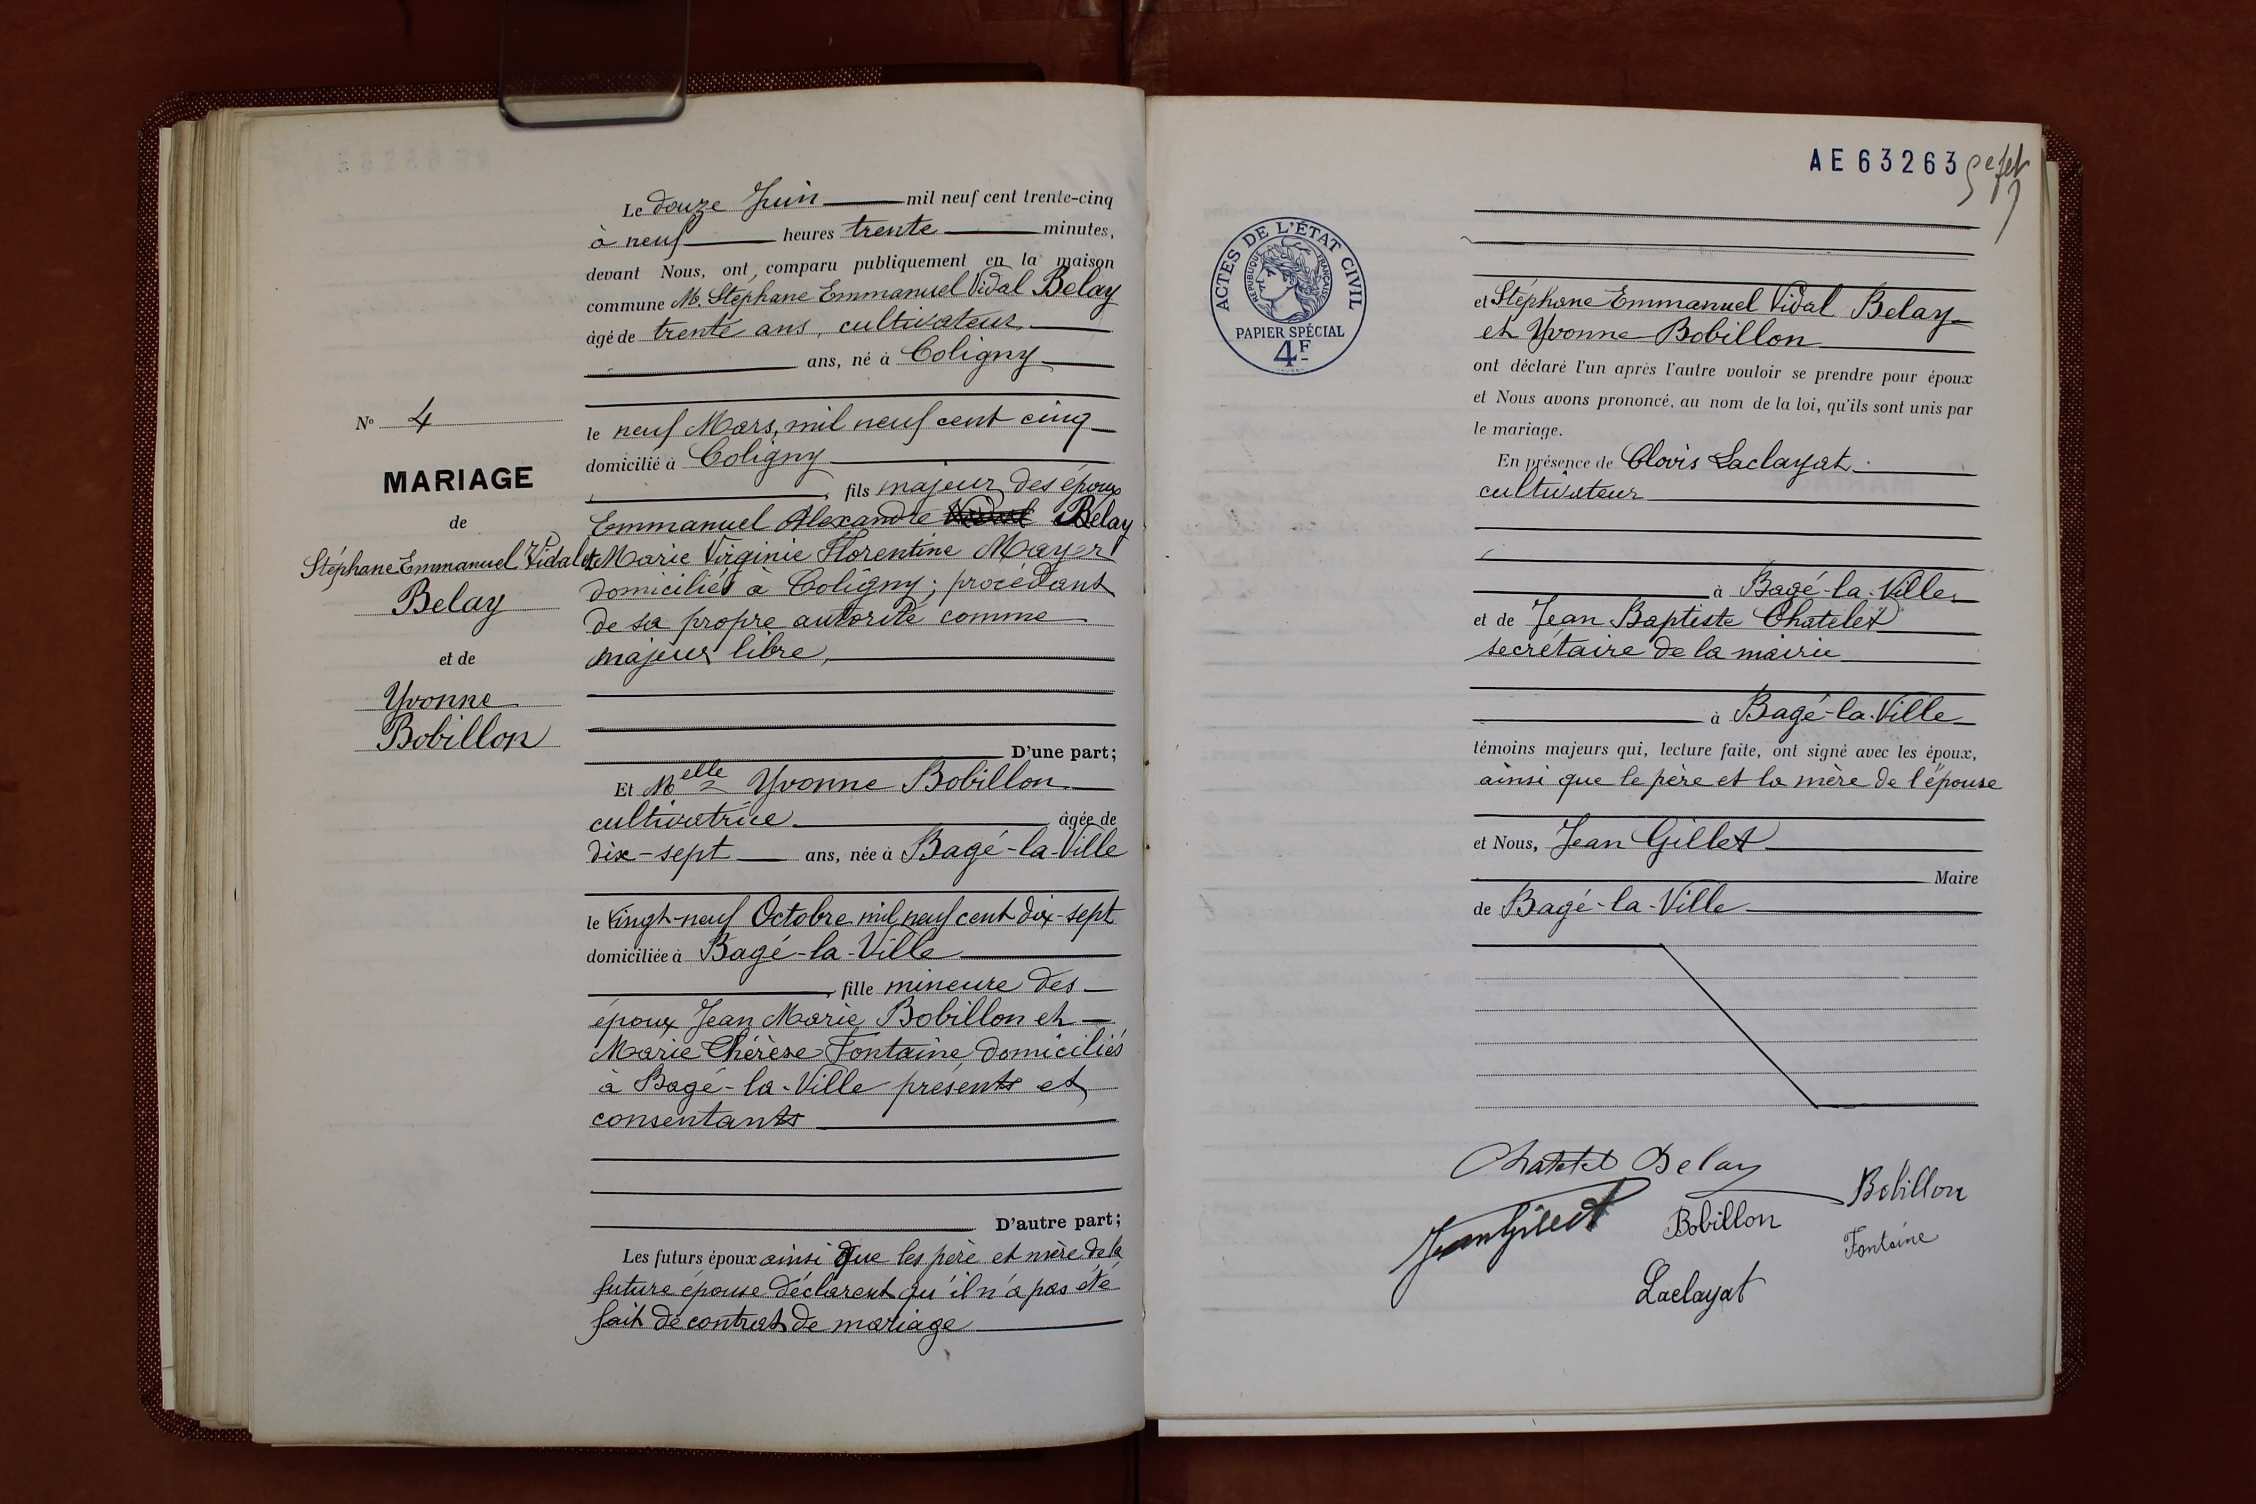 Le douze Juin mil neuf cent trente-cinq
à neuf heures trente minutes,
devant Nous, ont comparu publiquement en la maison
commune M. Stéphane Emmanuel Vidal Belay
âgé de trente ans, cultivateur
ans, né à Coligny
le neuf Mars, mil neuf cent cinq
domicilié à Coligny
fils majeur des époux
Emmanuel Alexandre Belay
et Marie Virginie Florentine Mayer
domiciliés à Coligny ; procédant
de sa propre autorité comme
majeur libre,
D'une part;
Et Melle Yvonne Bobillon
cultivatrice âgée de
dix-sept ans, née à Bagé-la-Ville
le vingt-neuf Octobre mil neuf cent dix-sept
domiciliée à Bagé-la-Ville
fille mineure des
époux Jean Marie Bobillon et
Marie Thérèse Fontaine domiciliés
à Bagé-la-Ville présents et
consentants
D'autre part;
Les futurs époux ainsi que les père et mère de la
future épouse déclarent qu'il n'a pas été
fait de contrat de mariage
N° 4
MARIAGE
de
Stéphane Emmanuel Vidal
Belay
et de
Yvonne
Bobillon
AE 63263
ACTES DE L'ÉTAT CIVIL
RÉPUBLIQUE FRANÇAISE
PAPIER SPÉCIAL
4F
et Stéphane Emmanuel Vidal Belay
et Yvonne Bobillon
ont déclaré l'un après l'autre vouloir se prendre pour époux
et Nous avons prononcé, au nom de la loi, qu'ils sont unis par
le mariage.
En présence de Clovis Laclayat
cultivateur
à Bagé-la-Ville
et de Jean Baptiste Chatelet
secrétaire de la mairie
à Bagé-la-Ville
témoins majeurs qui, lecture faite, ont signé avec les époux,
ainsi que le père et la mère de l'épouse
et Nous, Jean Gillet
Maire
de Bagé-la-Ville
Chatelet Belay
Bobillon
Jean Gillet Bobillon
Fontaine
Laclayat